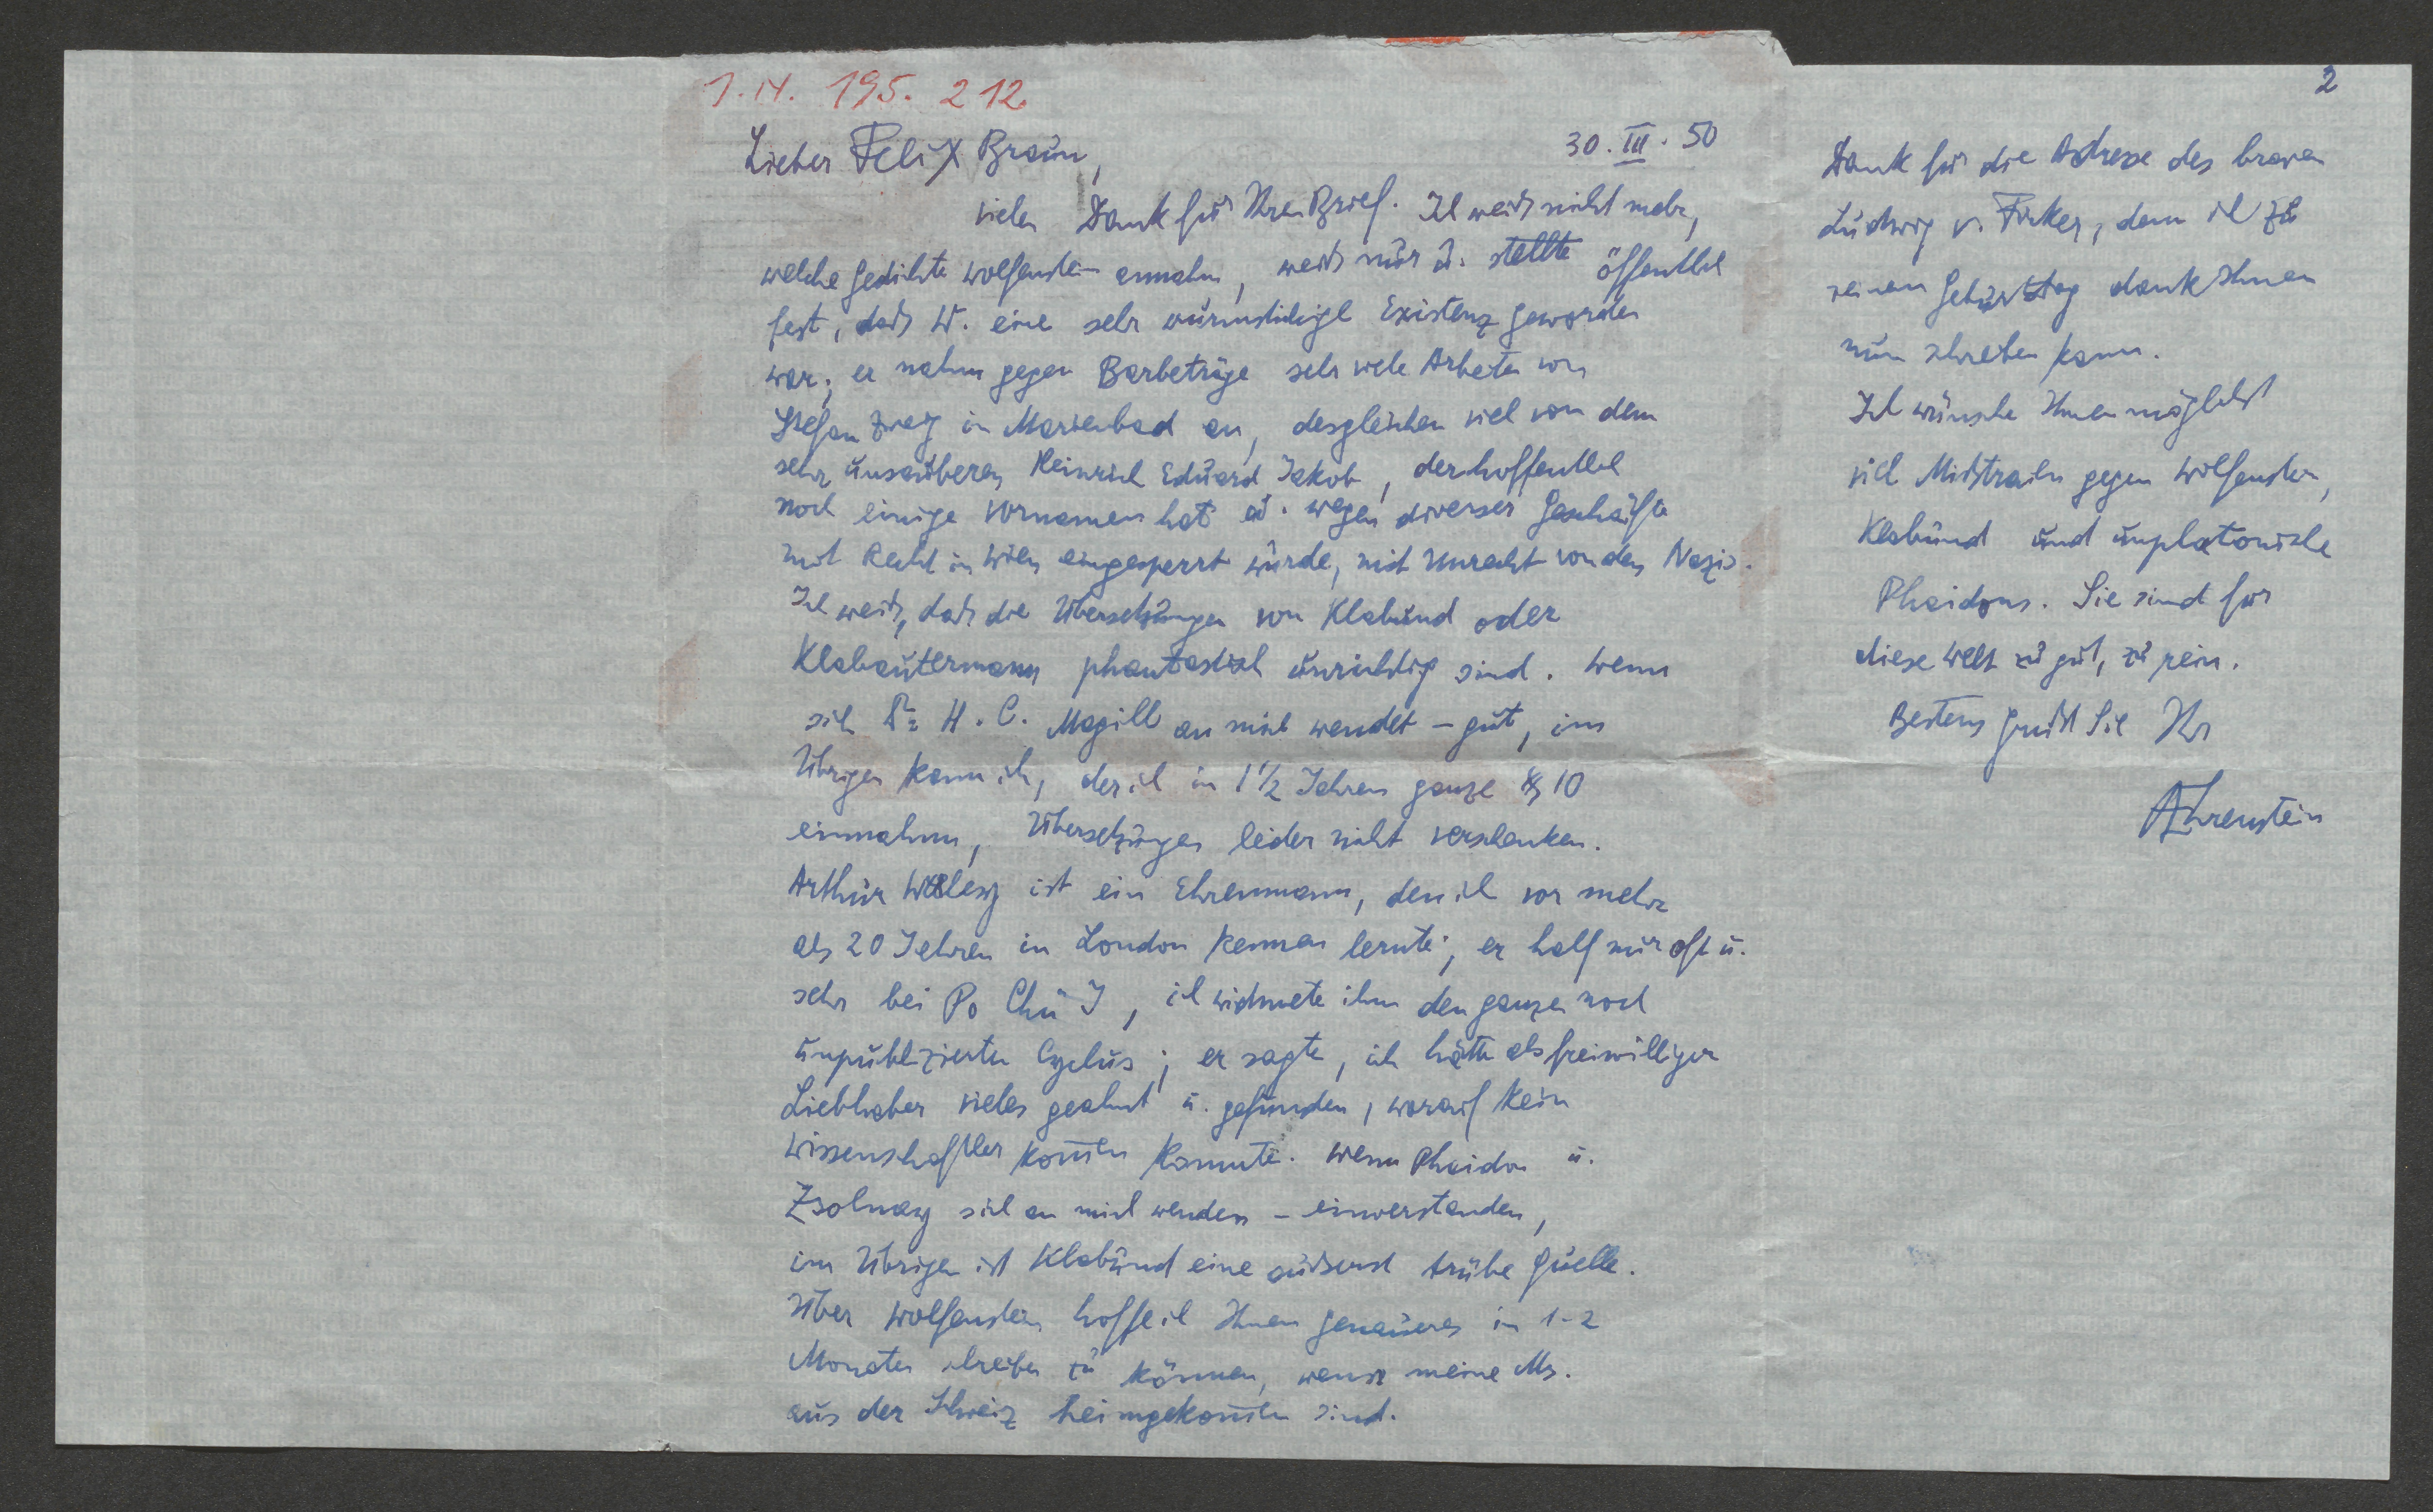 1. IX. 195. 212.
30. III. 50
Lieber Felix Braun,
vielen Dank für Ihren Brief. Ich weiß nicht mehr,
welche Gedichte Wolfenstein annahm, weiß nur u. stellte öffentlich
fest, daß W. eine sehr wurmstichige Existenz geworden
war; er nahm gegen Barbeträge sehr viele Arbeiten von
Stefan Zweig in Marienbad an, desgleichen viel von dem
sehr unsauberen Heinrich Eduard Jakob, der hoffentlich
noch einige Vornamen hat u. wegen diverser Geschäfte
mit Recht in Wien eingesperrt wurde, mit Unrecht von den Nazis.
Ich weiß, daß die Übersetzungen von Klabund oder
Klabautermann phantastisch unrichtig sind. Wenn
sich Dr H. C. Magill an mich wendet – gut, im
Übrigen kann ich, der ich in 1 1/2 Jahren ganze $ 10
einnahm, Übersetzungen leider nicht verschenken.
Arthur Waley ist ein Ehrenmann, den ich vor mehr
als 20 Jahren in London kennen lernte; er half mir oft u.
sehr bei Po Chü I, ich widmete ihm den ganzen noch
unpublizierten Cyclus; er sagte, ich hätte als freiwilliger
Liebhaber vieles geahnt u. gefunden, worauf kein
Wissenschaftler kom̄en konnte. Wenn Phaidon u.
Zsolnay sich an mich wenden – einverstanden,
im Übrigen ist Klabund eine äußerst trübe Quelle.
Über Wolfenstein hoffe ich Ihnen Genaueres in 1-2
Monaten schreiben zu können, wenn meine Ms.
aus der Schweiz heimgekom̄en sind.
2
Dank für die Adresse des braven
Ludwig v. Ficker, dem ich zu
seinem Geburtstag dank Ihnen
nun schreiben kann.
Ich wünsche Ihnen möglichst
viel Mißtrauen gegen Wolfenstein,
Klabund und unplatonische
Phaidons. Sie sind für
diese Welt zu gut, zu rein.
Bestens grüßt Sie Ihr
AEhrenstein